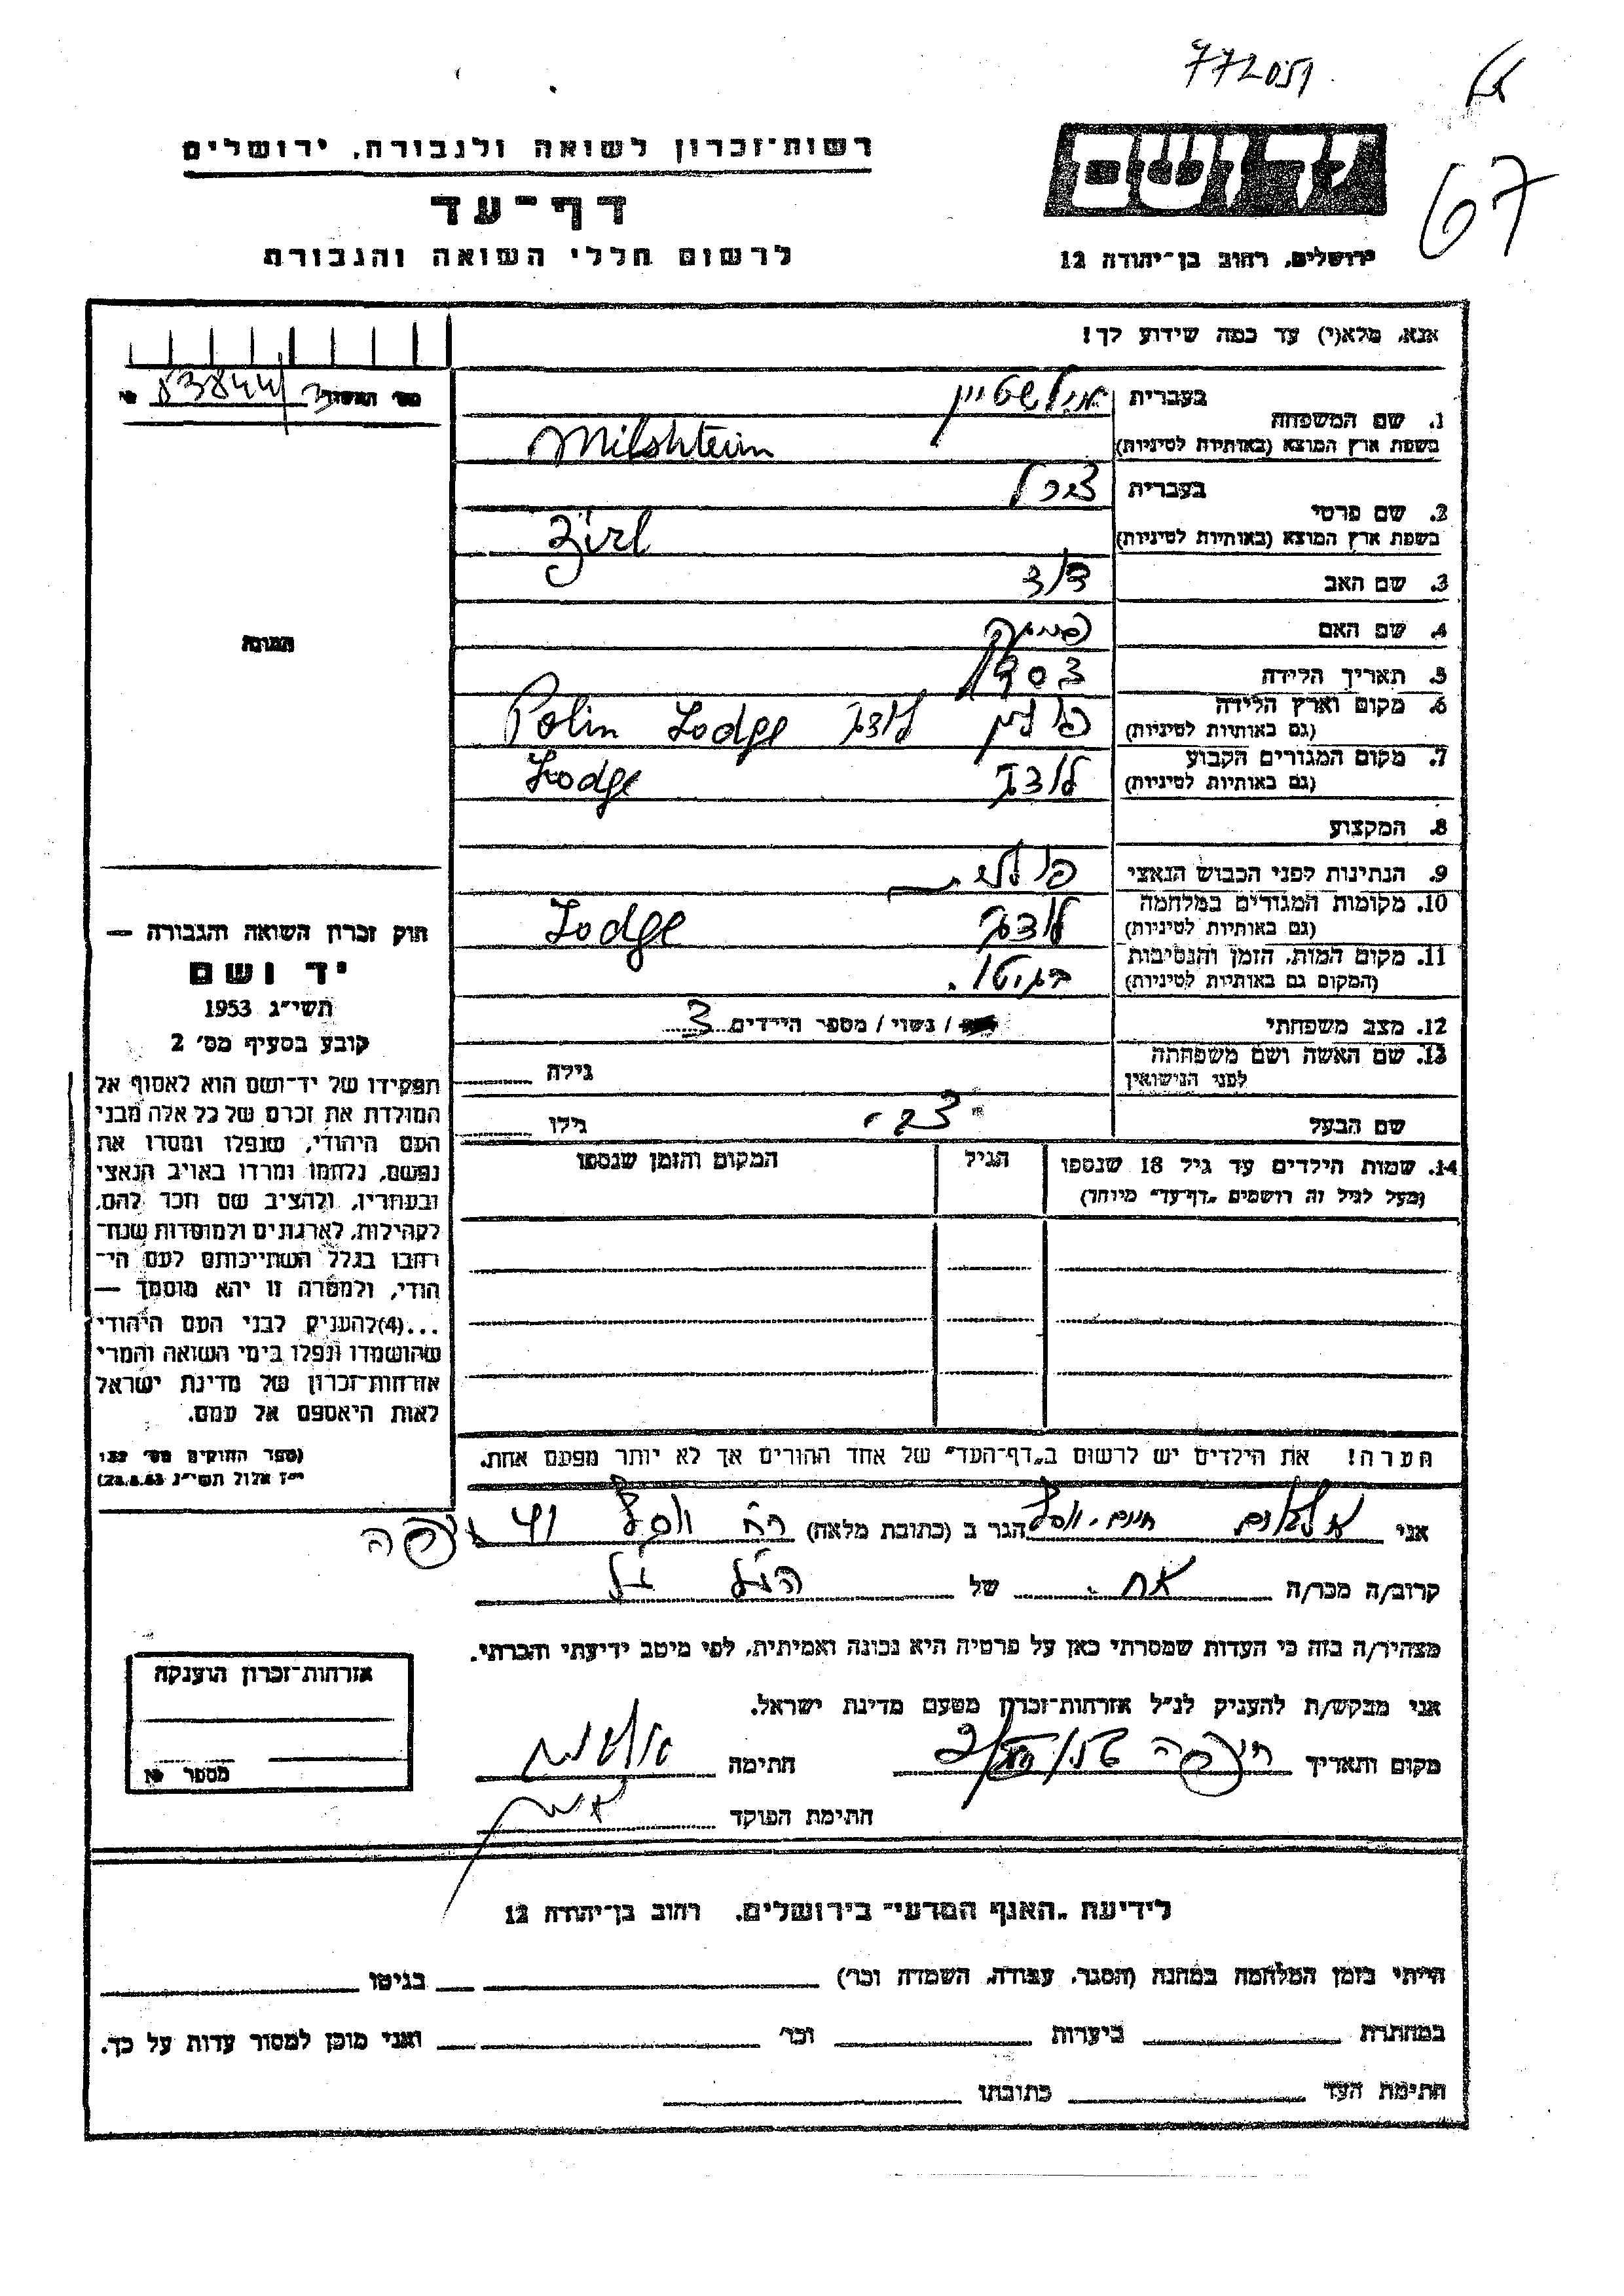 772051
67
רשות־זכרון לשואה ולגבורה, ירושלים
דף־עד
לרשום חללי השואה והגבורה
יד ושם
ירושלים, רחוב בן־יהודה 12
אנא, מלא(י) עד כמה שידוע לך!
1. שם המשפחה
בעברית מילשטיין
בשפת ארץ המוצא (באותיות לטיניות) Milshtein
2. שם פרטי
בעברית צירל
בשפת ארץ המוצא (באותיות לטיניות) Zirl
3. שם האב דוד
4. שם האם
5. תאריך הלידה 1903
6. מקום וארץ הלידה (גם באותיות לטיניות) פולין לודג Lodge Polin
7. מקום המגורים הקבוע (גם באותיות לטיניות) לודג Lodge
8. המקצוע
9. הנתינות לפני הכבוש הנאצי פולני
10. מקומות המגורים במלחמה (גם באותיות לטיניות) לודג Lodge
11. מקום המות, הזמן והנסיבות (המקום גם באותיות לטיניות) בגיטו.
12. מצב משפחתי / נשוי / מספר הילדים 3
13. שם האשה ושם משפחתה לפני הנישואין
גילה
שם הבעל
גילו
14. שמות הילדים עד גיל 18 שנספו (מעל לגיל זה רושמים "דף־עד" מיוחד)
הגיל
המקום והזמן שנספו
הערה! את הילדים יש לרשום ב"דף־העד" של אחד ההורים אך לא יותר מפעם אחת.
מס' האשור
התמונה
חוק זכרון השואה והגבורה —
יד ושם
תשי"ג 1953
קובע בסעיף מס' 2
תפקידו של יד־ושם הוא לאסוף אל
המולדת את זכרם של כל אלה מבני
העם היהודי, שנפלו ומסרו את
נפשם, נלחמו ומרדו באויב הנאצי
ובעוזריו, ולהציב שם וזכר להם,
לקהילות, לארגונים ולמוסדות שנח־
רבו בגלל השתייכותם לעם הי־
הודי, ולמטרה זו יהא מוסמך —
...(4)להעניק לבני העם היהודי
שהושמדו ונפלו בימי השואה והמרי
אזרחות־זכרון של מדינת ישראל
לאות היאספם אל עמם.
(ספר החוקים מס' 132
י"ז אלול תשי"ג 28.8.53)
אני חיים־יוסף הגר ב (כתובת מלאה) רח' יוסף חיפה
קרוב/ה מכר/ה אח של
מצהיר/ה בזה כי העדות שמסרתי כאן על פרטיה היא נכונה ואמיתית, לפי מיטב ידיעתי והכרתי.
אני מבקש/ת להעניק לנ"ל אזרחות־זכרון מטעם מדינת ישראל.
מקום ותאריך חיפה
חתימה
חתימת הפוקד
אזרחות־זכרון הוענקה
מספר №
לידיעת "האגף המדעי" בירושלים, רחוב בן־יהודה 12
הייתי בזמן המלחמה במחנה (הסגר, עבודה, השמדה וכר') בגיטו
במחתרת ביערות וכר' ואני מוכן למסור עדות על כך.
חתימת העד כתובתו